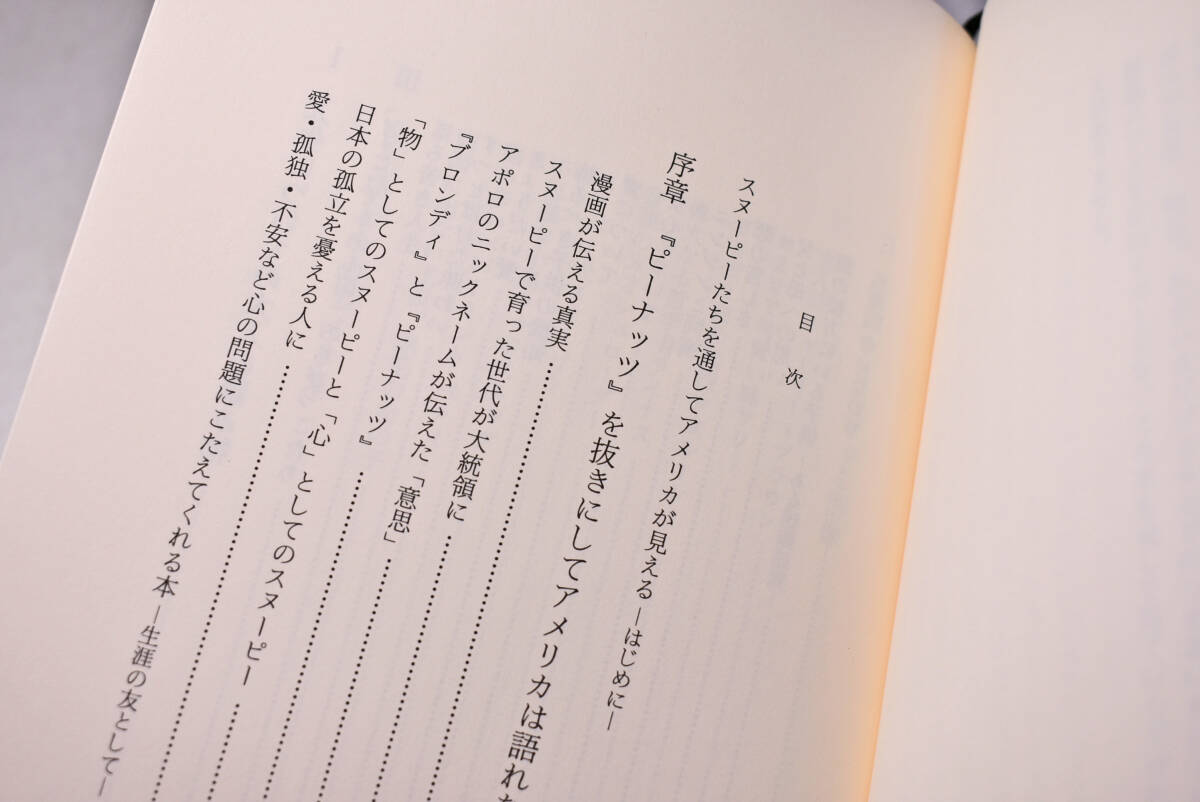 目次
スヌーピーたちを通してアメリカが見える ―はじめに―
序章 『ピーナッツ』を抜きにしてアメリカは語れ
漫画が伝える真実
スヌーピーで育った世代が大統領に
アポロのニックネームが伝えた「意思」
『ブロンディ』と『ピーナッツ』
「物」としてのスヌーピーと「心」としてのスヌーピー
日本の孤立を憂える人に
愛・孤独・不安など心の問題にこたえてくれる本 ―生涯の友として―